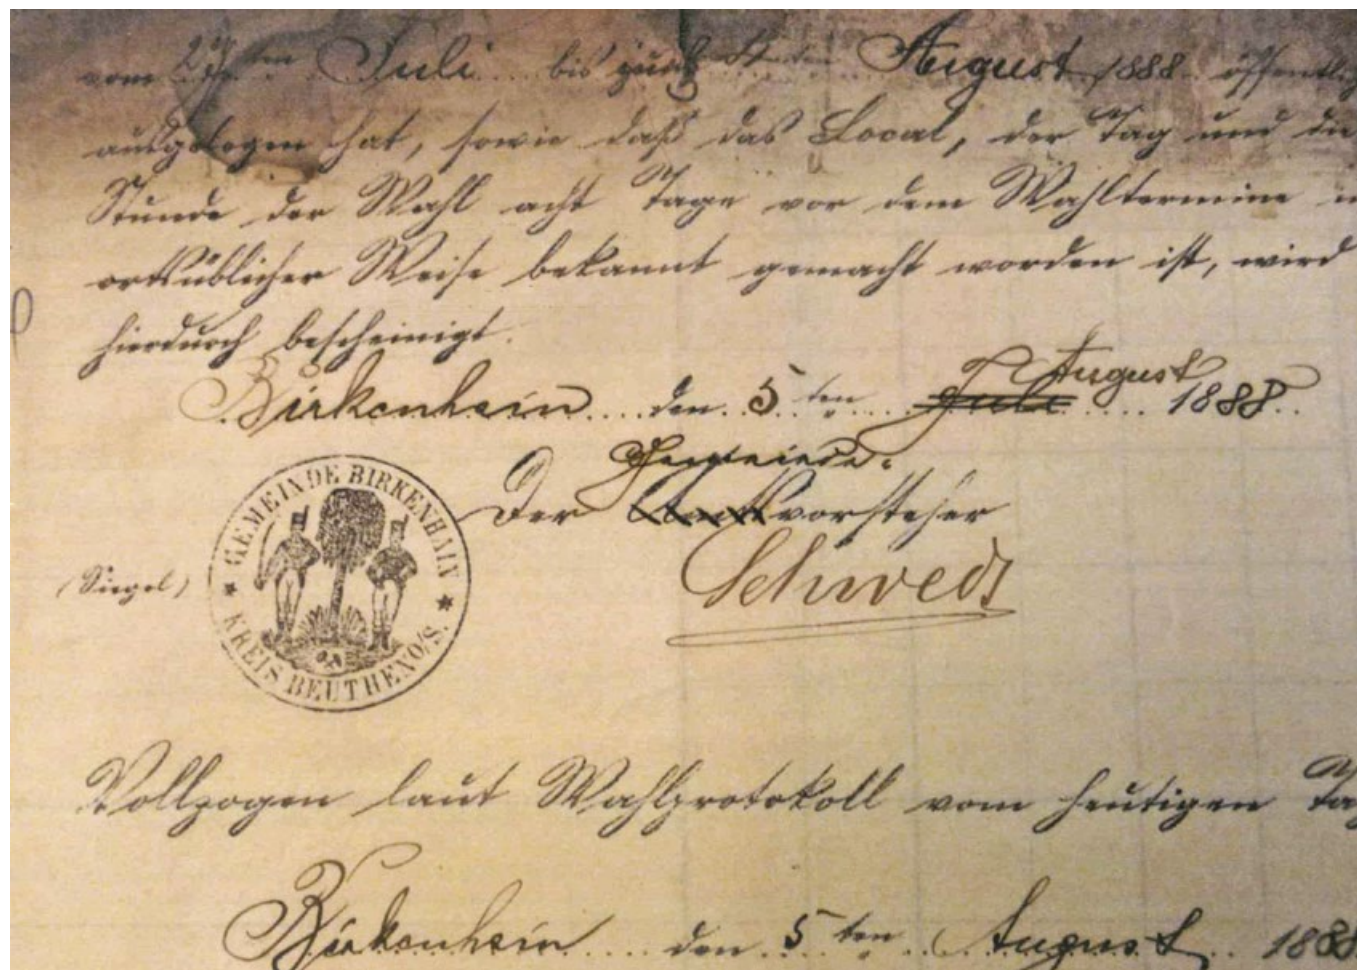 vom 27ten Juli bis zum ten August 1888 öffentlich
ausgelegen hat, sowie daß das Local, der Tag und die
Stunde der Wahl acht Tage vor dem Wahltermine in
ortsüblicher Weise bekannt gemacht worden ist, wird
hierdurch bescheinigt.
Birkenhain den 5ten Juli August 1888.
Gemeinde-
Der Amtsvorsteher
(Siegel)
GEMEINDE BIRKENHAIN
KREIS BEUTHEN O/S.
Schwedt
Vollzogen laut Wahlprotokoll vom heutigen Tag
Birkenhain den 5ten August 1888